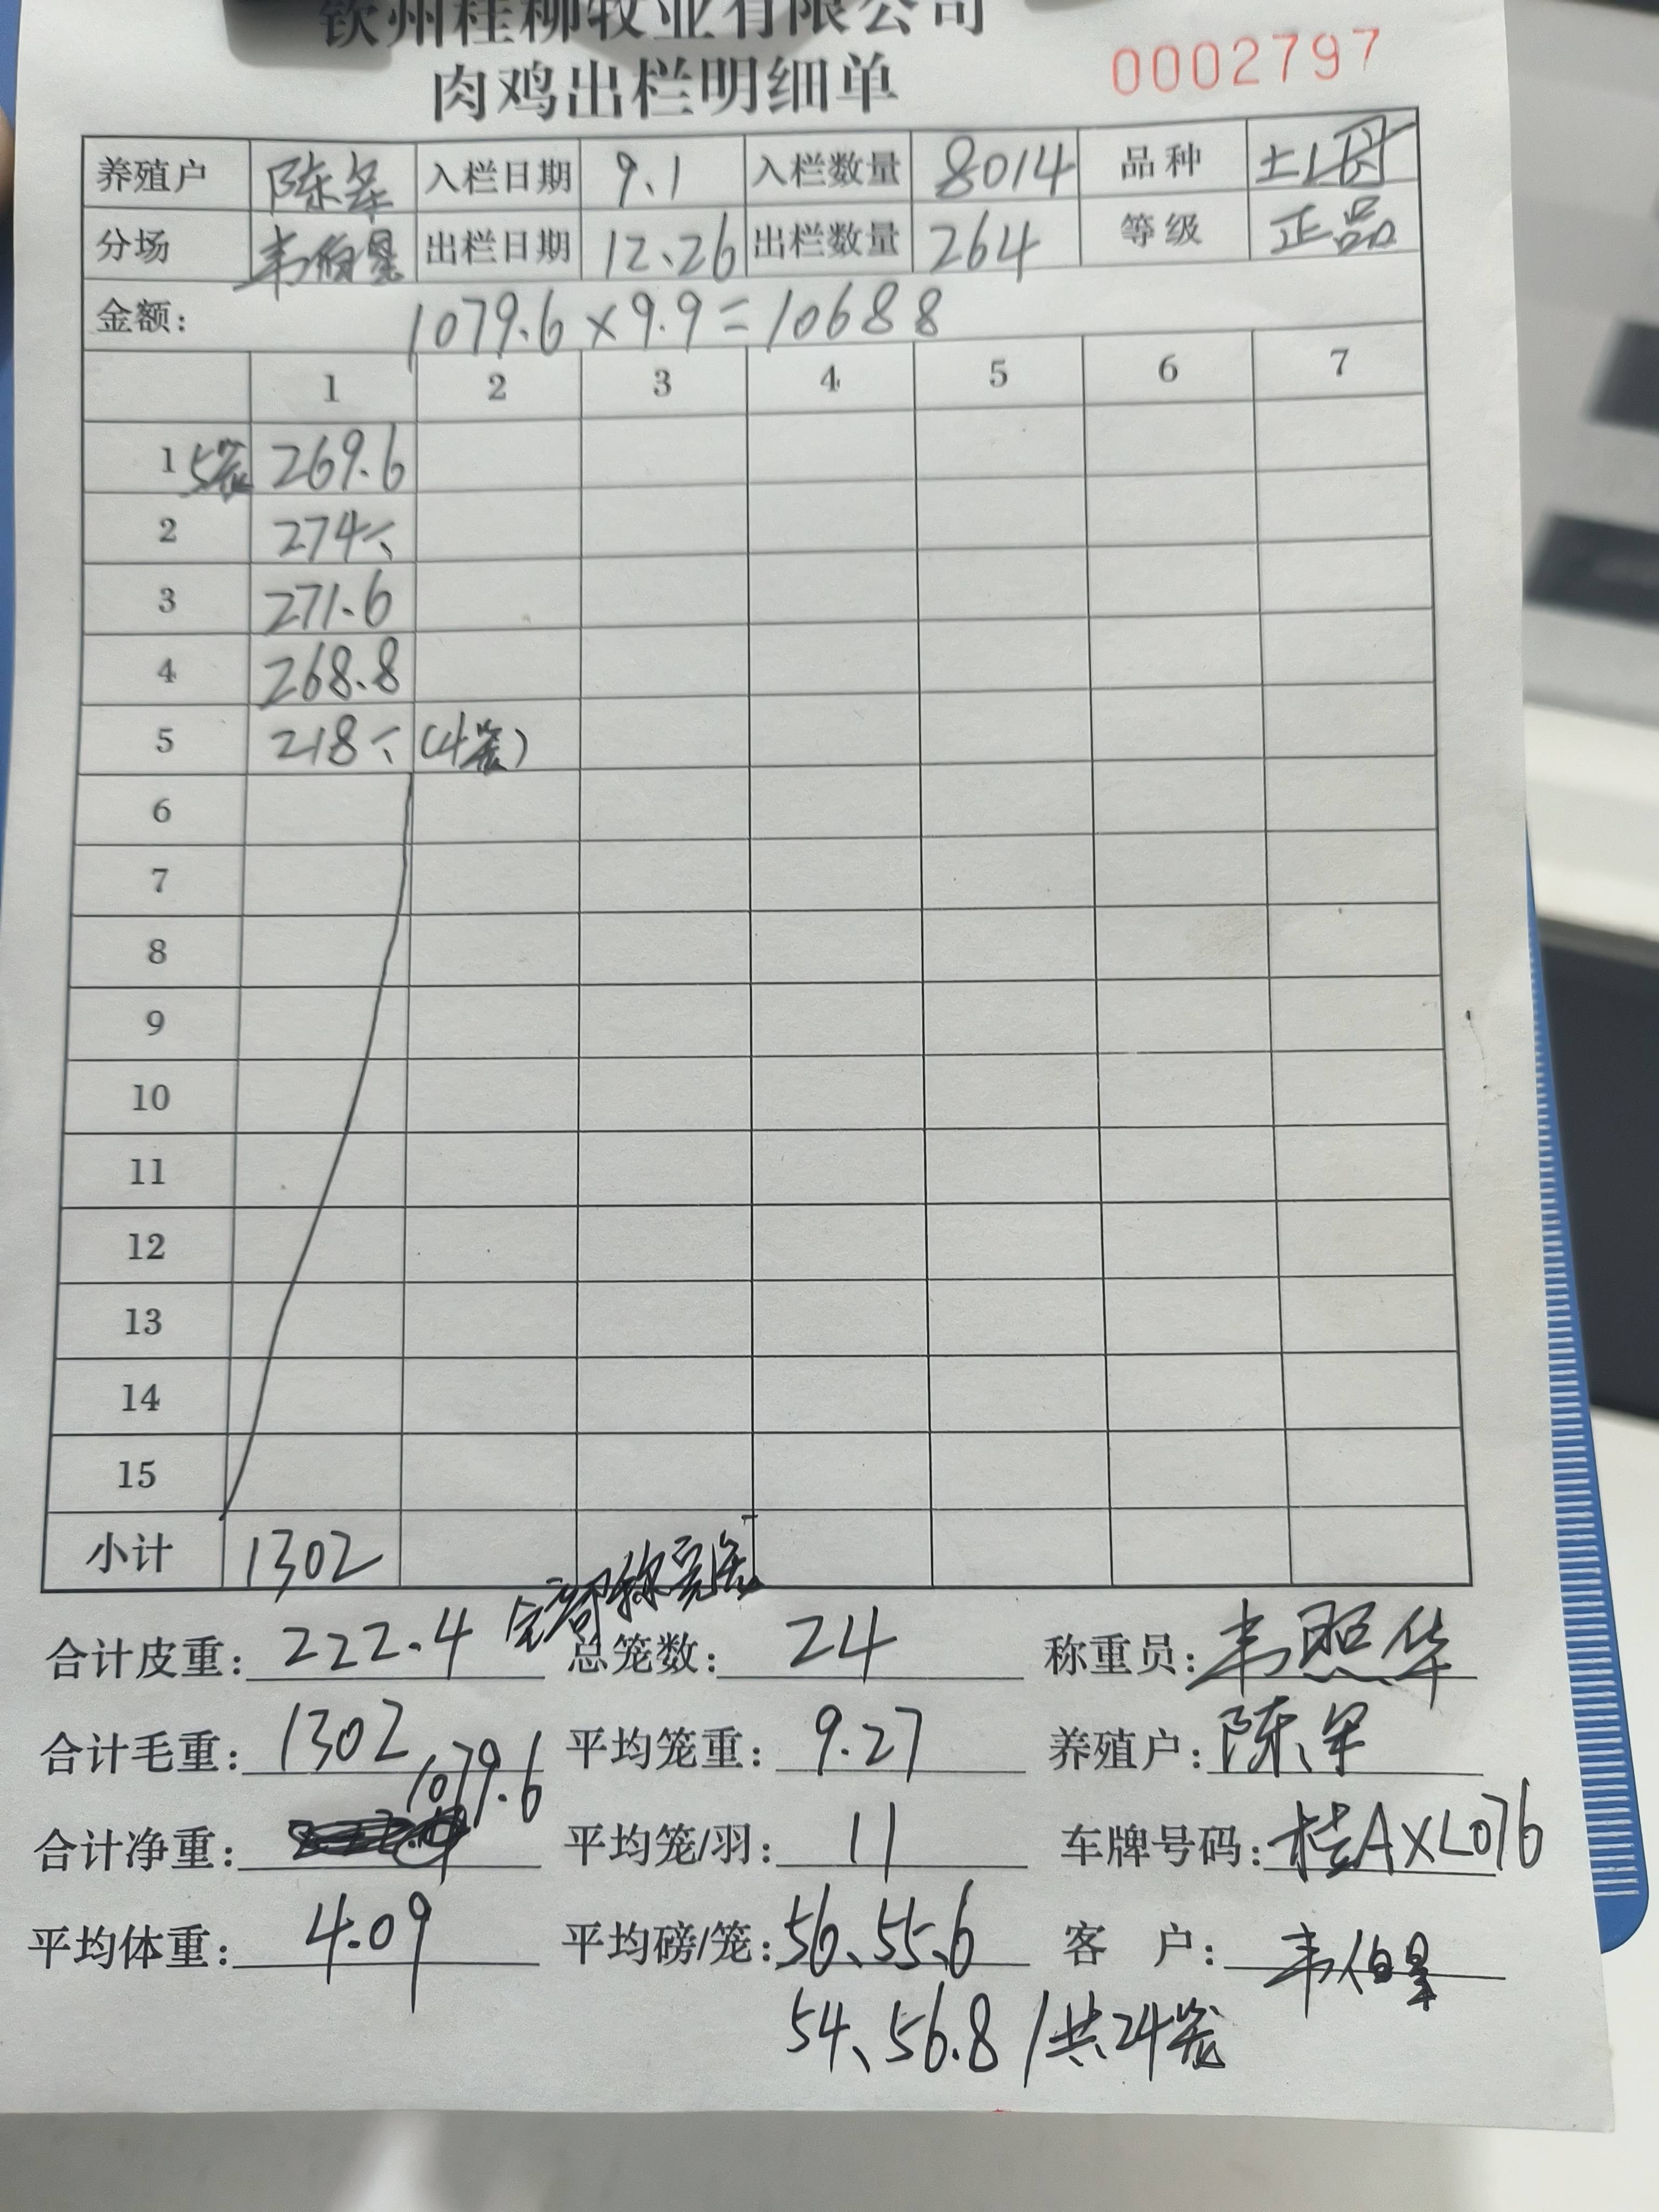 钦州桂柳牧业有限公司
肉鸡出栏明细单
0002797
养殖户 陈军 入栏日期 9.1 入栏数量 8014 品种 土2母
分场 韦伯星 出栏日期 12.26 出栏数量 264 等级 正品
金额: 1079.6×9.9=10688
1 2 3 4 5 6 7
1 5笼 269.6
2 274
3 271.6
4 268.8
5 218 (4笼)
6
7
8
9
10
11
12
13
14
15
小计 1302
全部称完笼
合计皮重: 222.4 总笼数: 24 称重员: 韦照华
合计毛重: 1302 平均笼重: 9.27 养殖户: 陈军
合计净重: 1079.6 平均笼/羽: 11 车牌号码: 桂AXL076
平均体重: 4.09 平均磅/笼: 56、55.6 客户: 韦伯星
54、56.8/共24笼